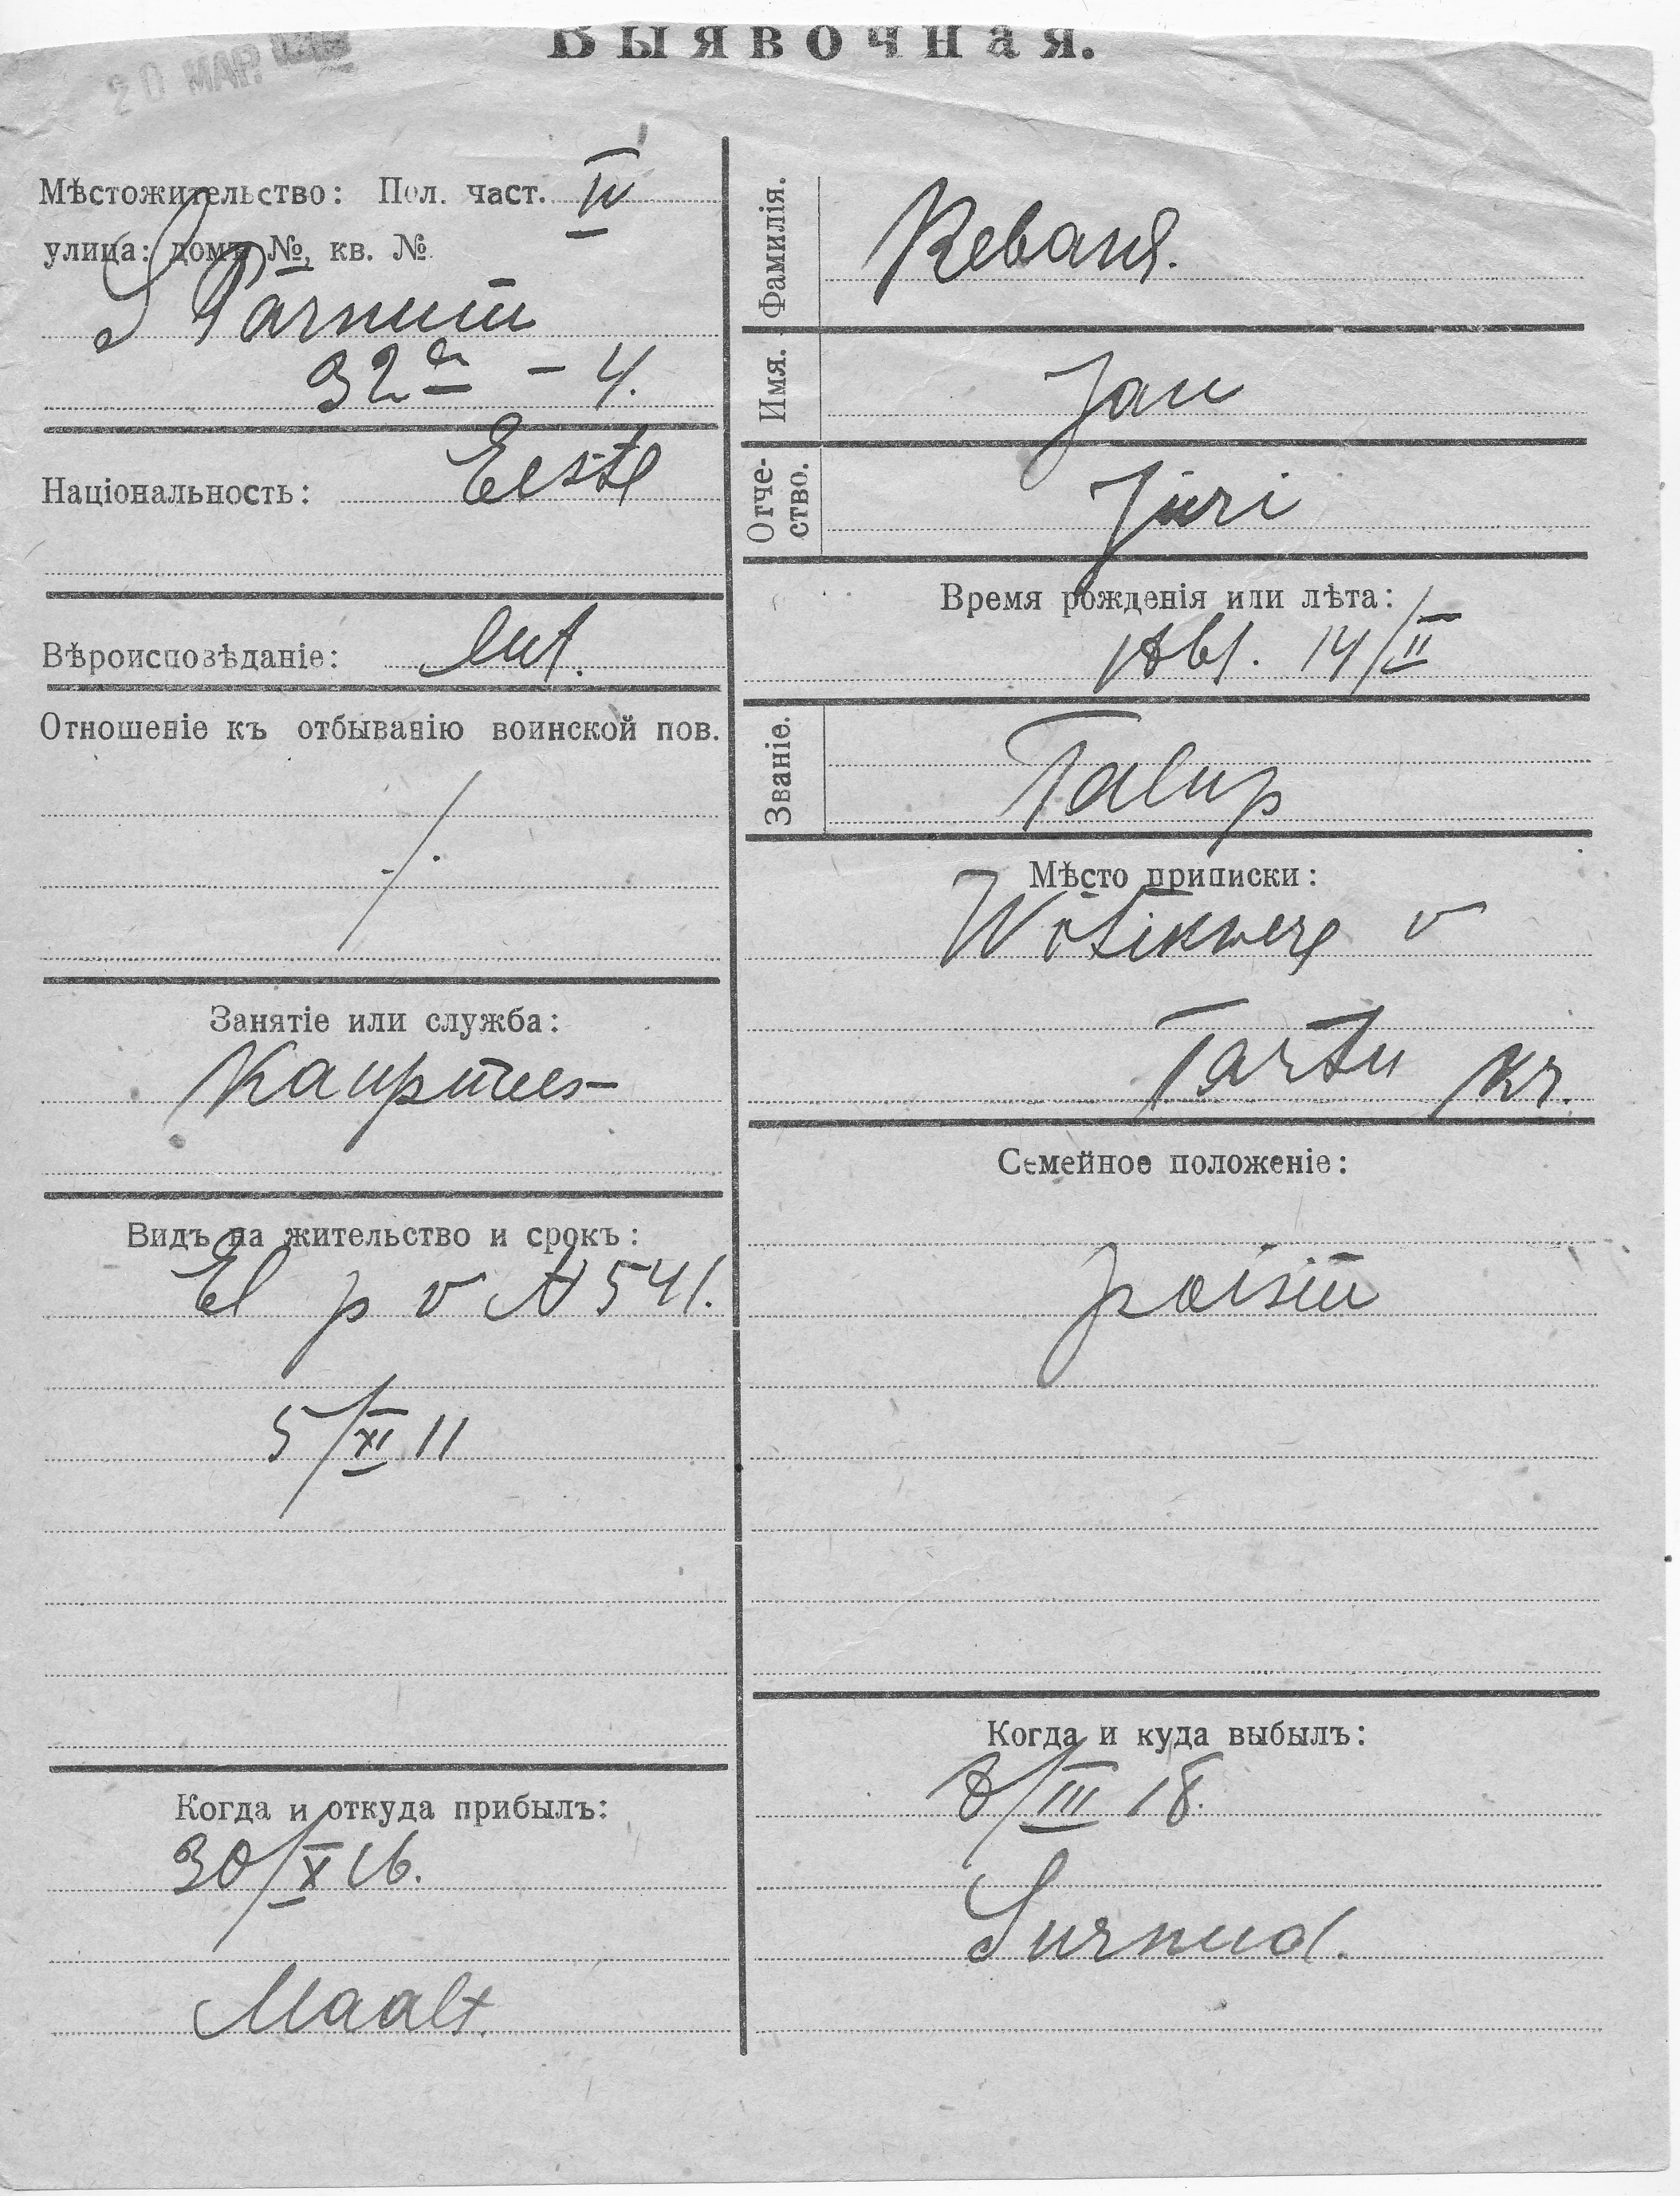 Выявочная.
20 МАР.
Мѣстожительство: Пол. част. IV
улица: домъ №, кв. №
S Pärnu m
32а – 4.
Національность: Eestl
Вѣроисповѣданіе: lut.
Отношеніе къ отбыванію воинской пов.
Занятіе или служба:
Kaupmees
Видъ на жительство и срокъ:
El p v N 541.
5/XI 11
Когда и откуда прибылъ:
30/X 16.
Maalt.
Фамилія. Rebane.
Имя. Jaan
Отчество. Jüri
Время рожденія или лѣта:
1861. 14/II
Званіе. Talup
Мѣсто приписки:
Wõtikwere v
Tartu kr.
Семейное положеніе:
poism
Когда и куда выбылъ:
8/III 18.
Surnud.